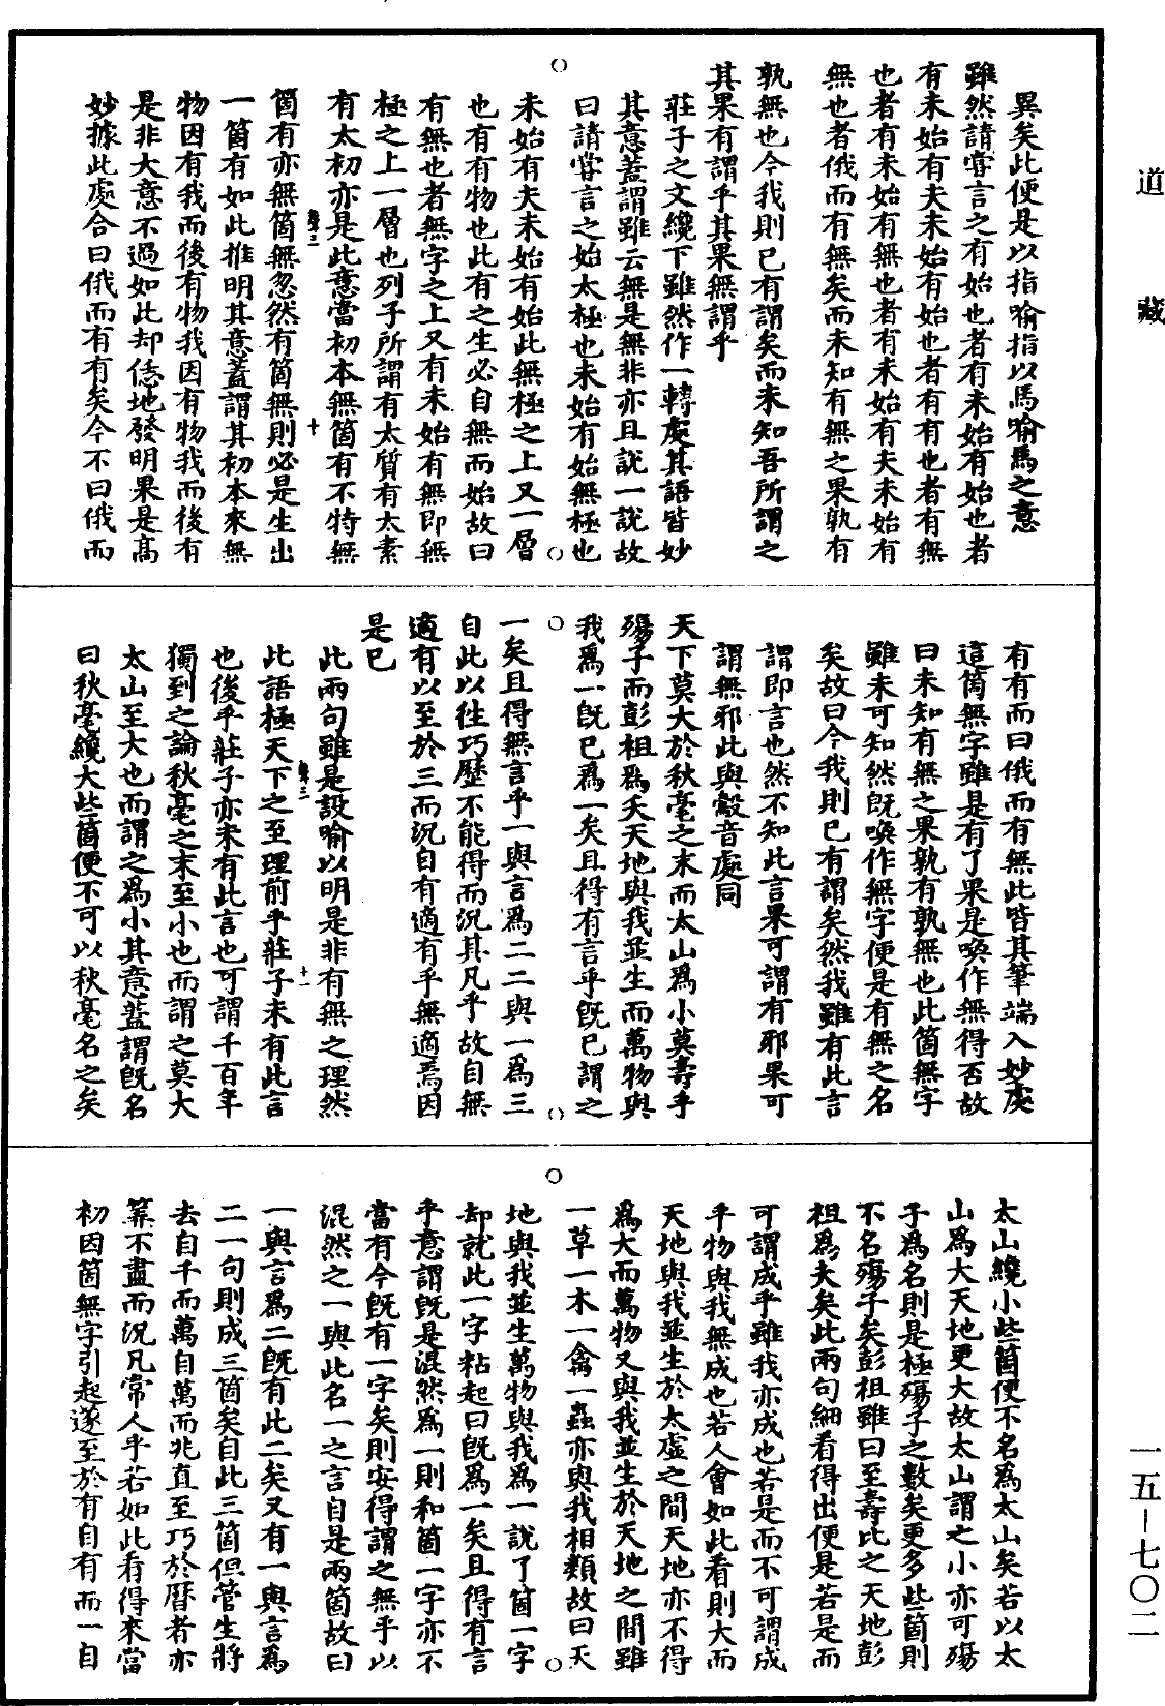 道藏
異矣此便是以指喻指以馬喻馬之意
雖然請嘗言之有始也者有未始有始也者
有未始有夫未始有始也者有有也者有無
也者有未始有無也者有未始有夫未始有
無也者俄而有無矣而未知有無之果孰有
孰無也今我則已有謂矣而未知吾所謂之
其果有謂乎其果無謂乎
莊子之文纔下雖然作一轉處其語皆妙
其意蓋謂雖云無是無非亦且說一說故
曰請嘗言之始太極也未始有始無極也
未始有夫未始有始此無極之上又一層
也有有物也此有之生必自無而始故曰
有無也者無字之上又有未始有無即無
極之上一層也列子所謂有太質有太素
有太初亦是此意當初本無箇有不特無
十
箇有亦無箇無忽然有箇無則必是生出
一箇有如此推明其意蓋謂其初本來無
物因有我而後有物我因有物我而後有
是非大意不過如此却恁地發明果是高
妙據此處合曰俄而有有矣今不曰俄而
有有而曰俄而有無此皆其筆端入妙處
這箇無字雖是有了果是喚作無得否故
曰未知有無之果孰有孰無也此箇無字
雖未可知然既喚作無字便是有無之名
矣故曰今我則已有謂矣然我雖有此言
謂即言也然不知此言果可謂有邪果可
謂無邪此與鷇音處同
天下莫大於秋毫之末而太山爲小莫壽乎
殤子而彭祖爲夭天地與我並生而萬物與
我爲一既已爲一矣且得有言乎既已謂之
一矣且得無言乎一與言爲二二與一爲三
自此以往巧歷不能得而況其凡乎故自無
適有以至於三而況自有適有乎無適焉因
是已
此兩句雖是設喻以明是非有無之理然
十一
此語極天下之至理前乎莊子未有此言
也後乎莊子亦未有此言也可謂千百年
獨到之論秋毫之末至小也而謂之莫大
太山至大也而謂之爲小其意蓋謂既名
曰秋毫纔大些箇便不可以秋毫名之矣
太山纔小些箇便不名爲太山矣若以太
山爲大天地更大故太山謂之小亦可殤
子爲名則是極殤子之數矣更多些箇則
不名殤子矣彭祖雖曰至壽比之天地彭
祖爲夭矣此兩句細看得出便是若是而
可謂成乎雖我亦成也若是而不可謂成
乎物與我無成也若人會如此看則大而
天地與我並生於太虛之間天地亦不得
爲大而萬物又與我並生於天地之間雖
一草一木一禽一蟲亦與我相類故曰天
地與我並生萬物與我爲一說了箇一字
却就此一字粘起曰既爲一矣且得有言
乎意謂既是混然爲一則和箇一字亦不
當有今既有一字矣則安得謂之無乎以
混然之一與此名一之言自是兩箇故曰
一與言爲二既有此二矣又有一與言爲
二一句則成三箇矣自此三箇但管生將
去自千而萬自萬而兆直至巧於曆者亦
筭不盡而況凡常人乎若如此看得來當
初因箇無字引起遂至於有自有而一自
一五－七〇二